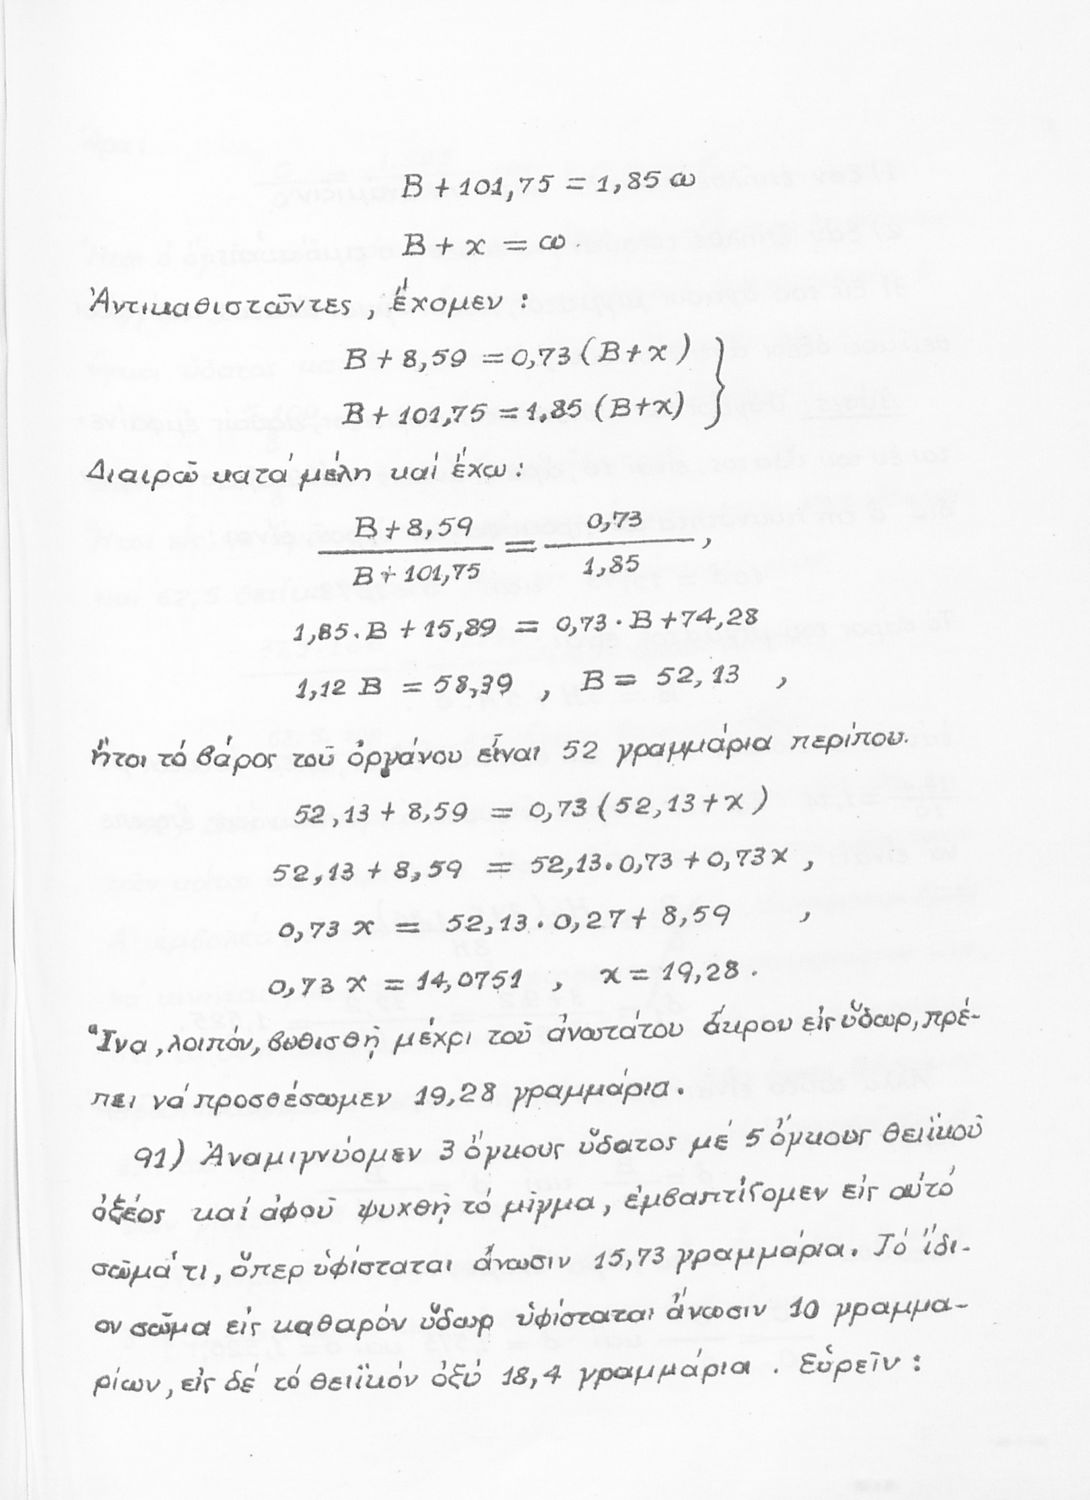 Β + 101,75 = 1,85 ω
Β + x = ω.
Ἀντικαθιστῶντες, ἔχομεν :
Β + 8,59 = 0,73 (Β+x) }
Β + 101,75 = 1,85 (Β+x)
Διαιρῶ κατά μέλη καί ἔχω :
Β + 8,59 / Β + 101,75 = 0,73 / 1,85 ,
1,85. Β + 15,89 = 0,73 · Β + 74,28
1,12 Β = 58,39 , Β = 52,13 ,
ἤτοι τό βάρος τοῦ ὀργάνου εἶναι 52 γραμμάρια περίπου.
52,13 + 8,59 = 0,73 (52,13 + x)
52,13 + 8,59 = 52,13 . 0,73 + 0,73 x ,
0,73 x = 52,13 . 0,27 + 8,59 ,
0,73 x = 14,0751 , x = 19,28 .
Ἵνα, λοιπόν, βυθισθῇ μέχρι τοῦ ἀνωτάτου ἄκρου εἰς ὕδωρ, πρέ-
πει νά προσθέσωμεν 19,28 γραμμάρια.
91) Ἀναμιγνύομεν 3 ὄγκους ὕδατος μέ 5 ὄγκους θειϊκοῦ
ὀξέος καί ἀφοῦ ψυχθῇ τό μῖγμα, ἐμβαπτίζομεν εἰς αὐτό
σῶμά τι, ὅπερ ὑφίσταται ἄνωσιν 15,73 γραμμάρια. Τό ἴδι-
ον σῶμα εἰς καθαρόν ὕδωρ ὑφίσταται ἄνωσιν 10 γραμμα-
ρίων, εἰς δέ τό θειϊκόν ὀξύ 18,4 γραμμάρια . Εὑρεῖν :